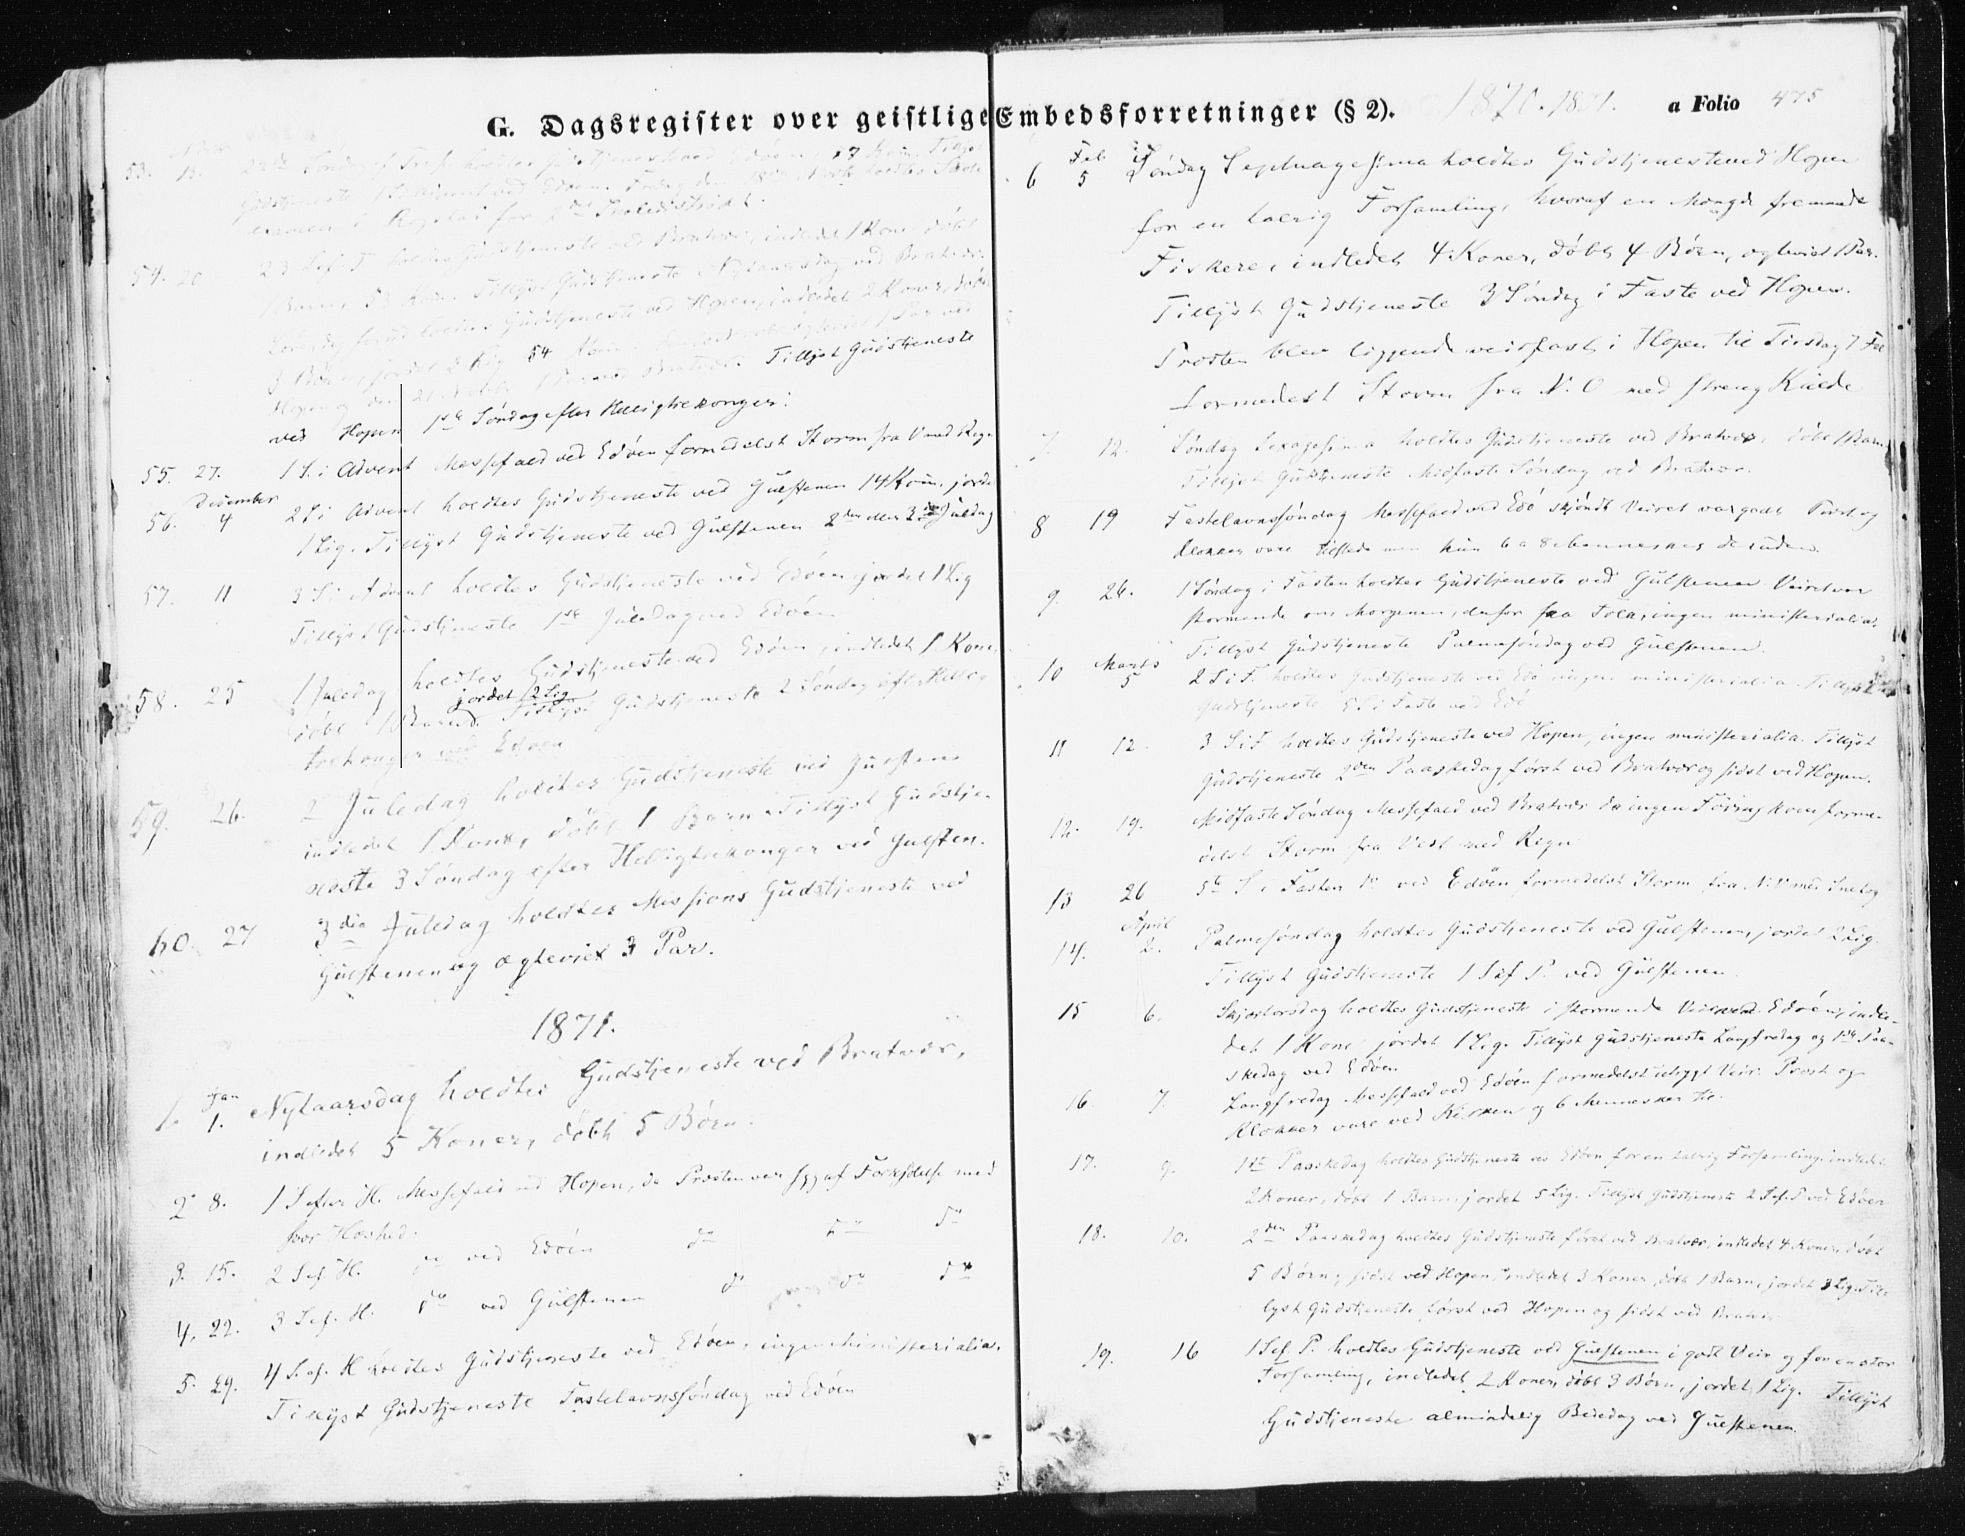 G. Dagsregister over geistlige Embedsforretninger (§ 2). 1870. 1871. a Folio 475
53. 13. holdtes Gudstjeneste ved Edøen, 27 Kom. Tillyst
Gudstjeneste
for 2det Skoledistrikt.
54. 20 23 S ef. T holdtes Gudstjeneste ved Bratvær, indledet 1 Kone døbt
1 Barn, 53 Kom. Tillyst Gudstjeneste Nytaarsdag ved Bratvær
holdtes Gudstjeneste ved Hopen, indledet 2 Koner, døbt
3 Børn, jordet 2 Lig 54 Kom.
Hopen og den 21 Tillyst Gudstjeneste
ved Hopen 1ste Søndag efter Helligtrekonger.
55. 27. 1 S. i Advent Messefald ved Edøen formedelst Storm fra V med Regn
December
56. 4 2 S i Advent holdtes Gudstjeneste ved Gulstenen 14 Kom. jordet
1 Lig. Tillyst Gudstjeneste ved Gulstenen 2den eller 3die Juledag
57. 11 3 S i Advent holdtes Gudstjeneste ved Edøen, jordet 1 Lig
Tillyst Gudstjeneste 1ste Juledag ved Edøen
58. 25 1 Juledag holdtes Gudstjeneste ved Edøen, indledet 1 Kone,
jordet 2 Lig
døbt 1 Barn. Tillyst Gudstjeneste 2 Søndag efter Hellig
trekonger ved Edøen
59. 26. 2 Juledag holdtes Gudstjeneste ved Gulstenen
indledet 1 Kone, døbt 1 Barn. Tillyst Gudstje-
neste 3 Søndag efter Helligtrekonger ved Gulsten.
60. 27 3die Juledag holdtes Missions Gudstjeneste ved
Gulstenen og ægteviet 3 Par.
1871.
Jan
1. 1. Nytaarsdag holdtes Gudstjeneste ved Bratvær,
indledet 5 Koner, døbt 5 Børn.
2 8. 1 S efter H. Messefald ved Hopen, da Provsten var syg af Forkjølelse med
svær Hæshed.
3. 15. 2 S ef. H. do ved Edøen do do do
4. 22. 3 S ef. H. do ved Gulstenen do do do
5. 29. 4 S. ef. H holdtes Gudstjeneste ved Edøen, ingen Ministerialia.
Tillyst Gudstjeneste Fastelavnssøndag ved Edøen
Feb
6 5 Søndag Septuagesima holdtes Gudstjeneste ved Hopen
for en talrig Forsamling, hvoraf en Mængde fremmede
Fiskere, indledet 4 Koner, døbt 4 Børn, ægteviet 1 Par.
Tillyst Gudstjeneste 3 Søndag i Faste ved Hopen.
Provsten blev liggende veirfast i Hopen til Tirsdag 7 Feb
formedelst Storm fra N. O med streng Kulde
7. 12. Søndag Sexagesima holdtes Gudstjeneste ved Bratvær, døbt 1 Barn
Tillyst Gudstjeneste Midfaste Søndag ved Bratvær.
8 19 Fastelavnssøndag Messefald ved Edø skjøndt Veiret var godt Provst og
Klokker vare tilstede men kun 6 a 8 Mennesker desuden.
9. 26. 1 Søndag i Fasten holdtes Gudstjeneste ved Gulstenen Veiret var
stormende om Morgenen, derfor faa Folk, ingen ministerialia.
Tillyst Gudstjeneste Palmesøndag ved Gulstenen.
10 Marts 5 2 S i F. holdtes Gudstjeneste ved Edø ingen ministerialia. Tillyst
Gudstjeneste 5 S i Faste ved Edø
11 12. 3 S i F holdtes Gudstjeneste ved Hopen, ingen ministerialia. Tillyst
Gudstjeneste 2den Paaskedag først ved Bratvær og sidst ved Hopen.
12. 19. Midfaste Søndag Messefald ved Bratvær da ingen Føring kom forme-
delst Storm fra Vest med Regn
13 26 5te S i Fasten do ved Edøen formedelst Storm fra N. V med Snekog
April
14. 2. Palmesøndag holdtes Gudstjeneste ved Gulstenen, jordet 2 Lig.
Tillyst Gudstjeneste 1 S ef P. ved Gulstenen.
15 6. Skjærtorsdag holdtes Gudstjeneste i stormende Veir ved Edøen, indle-
det 1 Kone jordet 1 Lig. Tillyst Gudstjeneste Langfredag og 1ste Paa-
skedag ved Edøen
16. 7. Langfredag Messefald ved Edøen formedelst stygt Veir. Provst og
Klokker vare ved Kirken og 6 Mennesker til.
17. 9. 1ste Paaskedag holdtes Gudstjeneste ved Edøen for en talrig Forsamling, indledet
2 Koner, døbt 1 Barn, jordet 5 Lig. Tillyst Gudstjeneste 2 S ef. P ved Edøen
18. 10. 2den Paaskedag holdtes Gudstjeneste først ved Bratvær, indledet 4 Koner, døbt
5 Børn, sidst ved Hopen, indledet 3 Koner, døbt 1 Barn, jordet 3 Lig. Til-
lyst Gudstjeneste først ved Hopen og sidst ved Bratvær
19. 16 1 S ef P. holdtes Gudstjeneste ved Gulstenen i godt Veir og for en stor
Forsamling, indledet 2 Koner, døbt 3 Børn, jordet 1 Lig. Tillyst
Gudstjeneste almindelig Bededag ved Gulstenen.